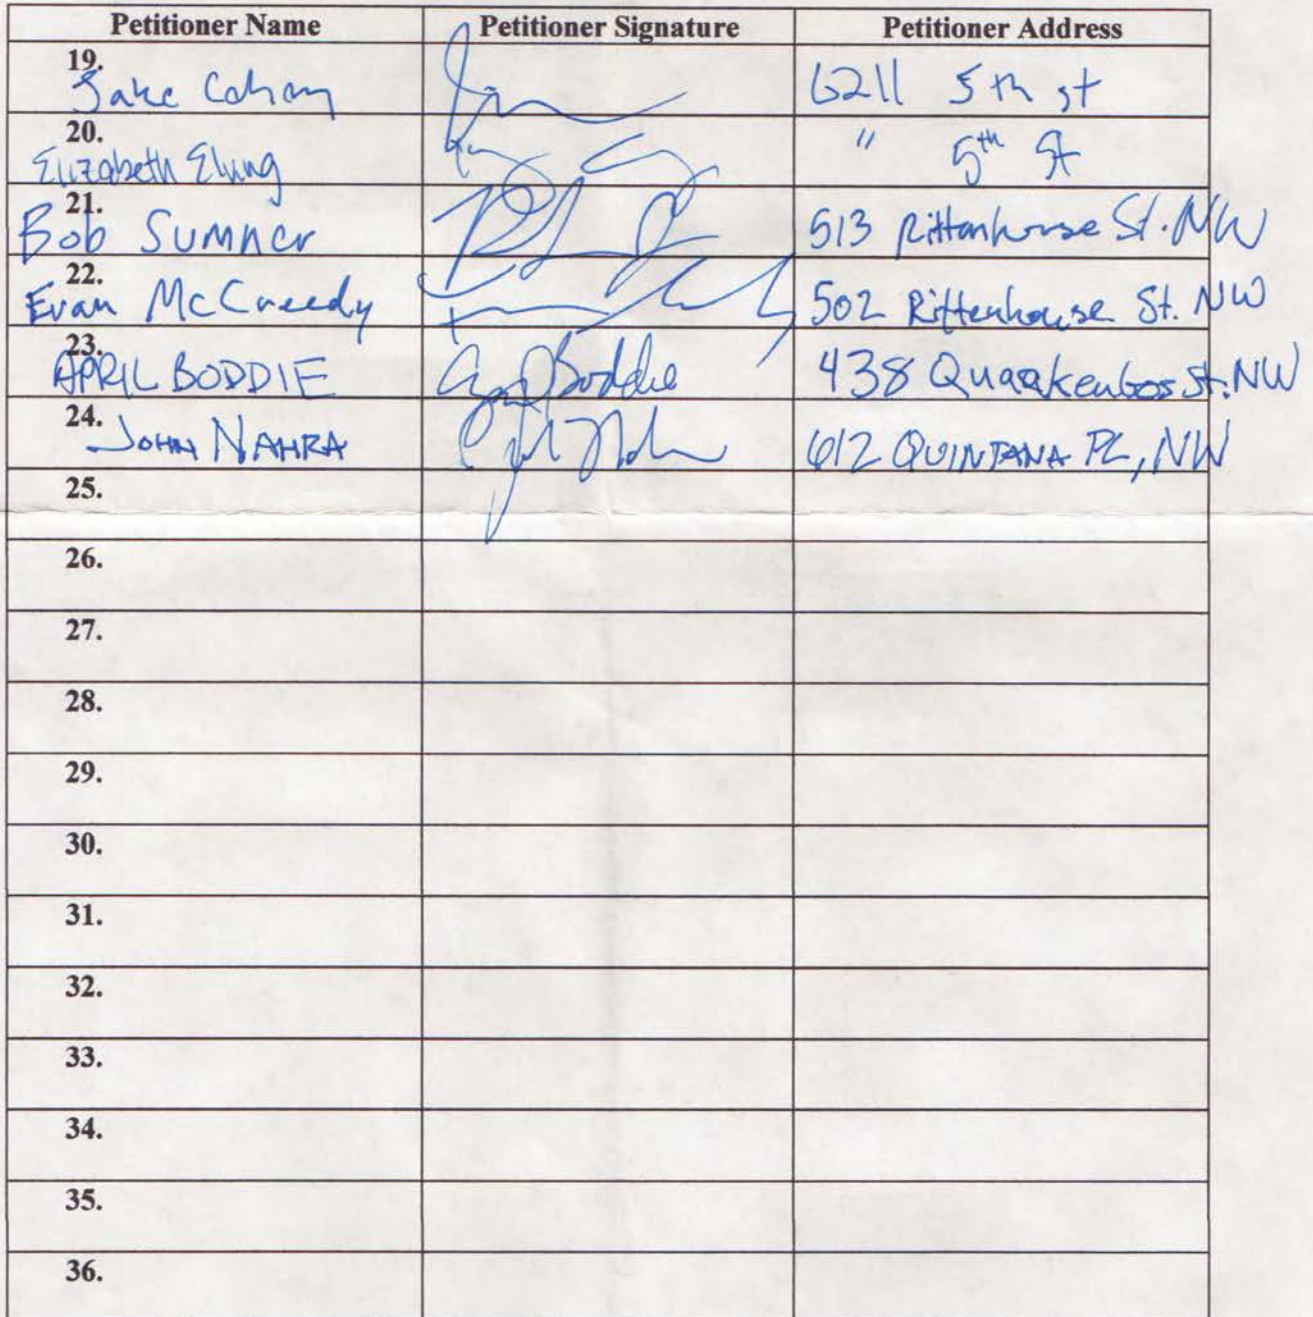 Petitioner Name Petitioner Signature Petitioner Address
19. Jake 6211 5th st
20. Elizabeth " 5th St
21. Bob Sumner 513 Rittenhouse St. NW
22. Evan McCreedy 502 Rittenhouse St. NW
23. APRIL BODDIE April Boddie 438 Quackenbos St. NW
24. JOHN NAHRA 612 QUINTANA PL, NW
25.
26.
27.
28.
29.
30.
31.
32.
33.
34.
35.
36.